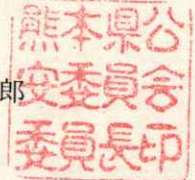 郎
熊本県公
安委員会
委員長印